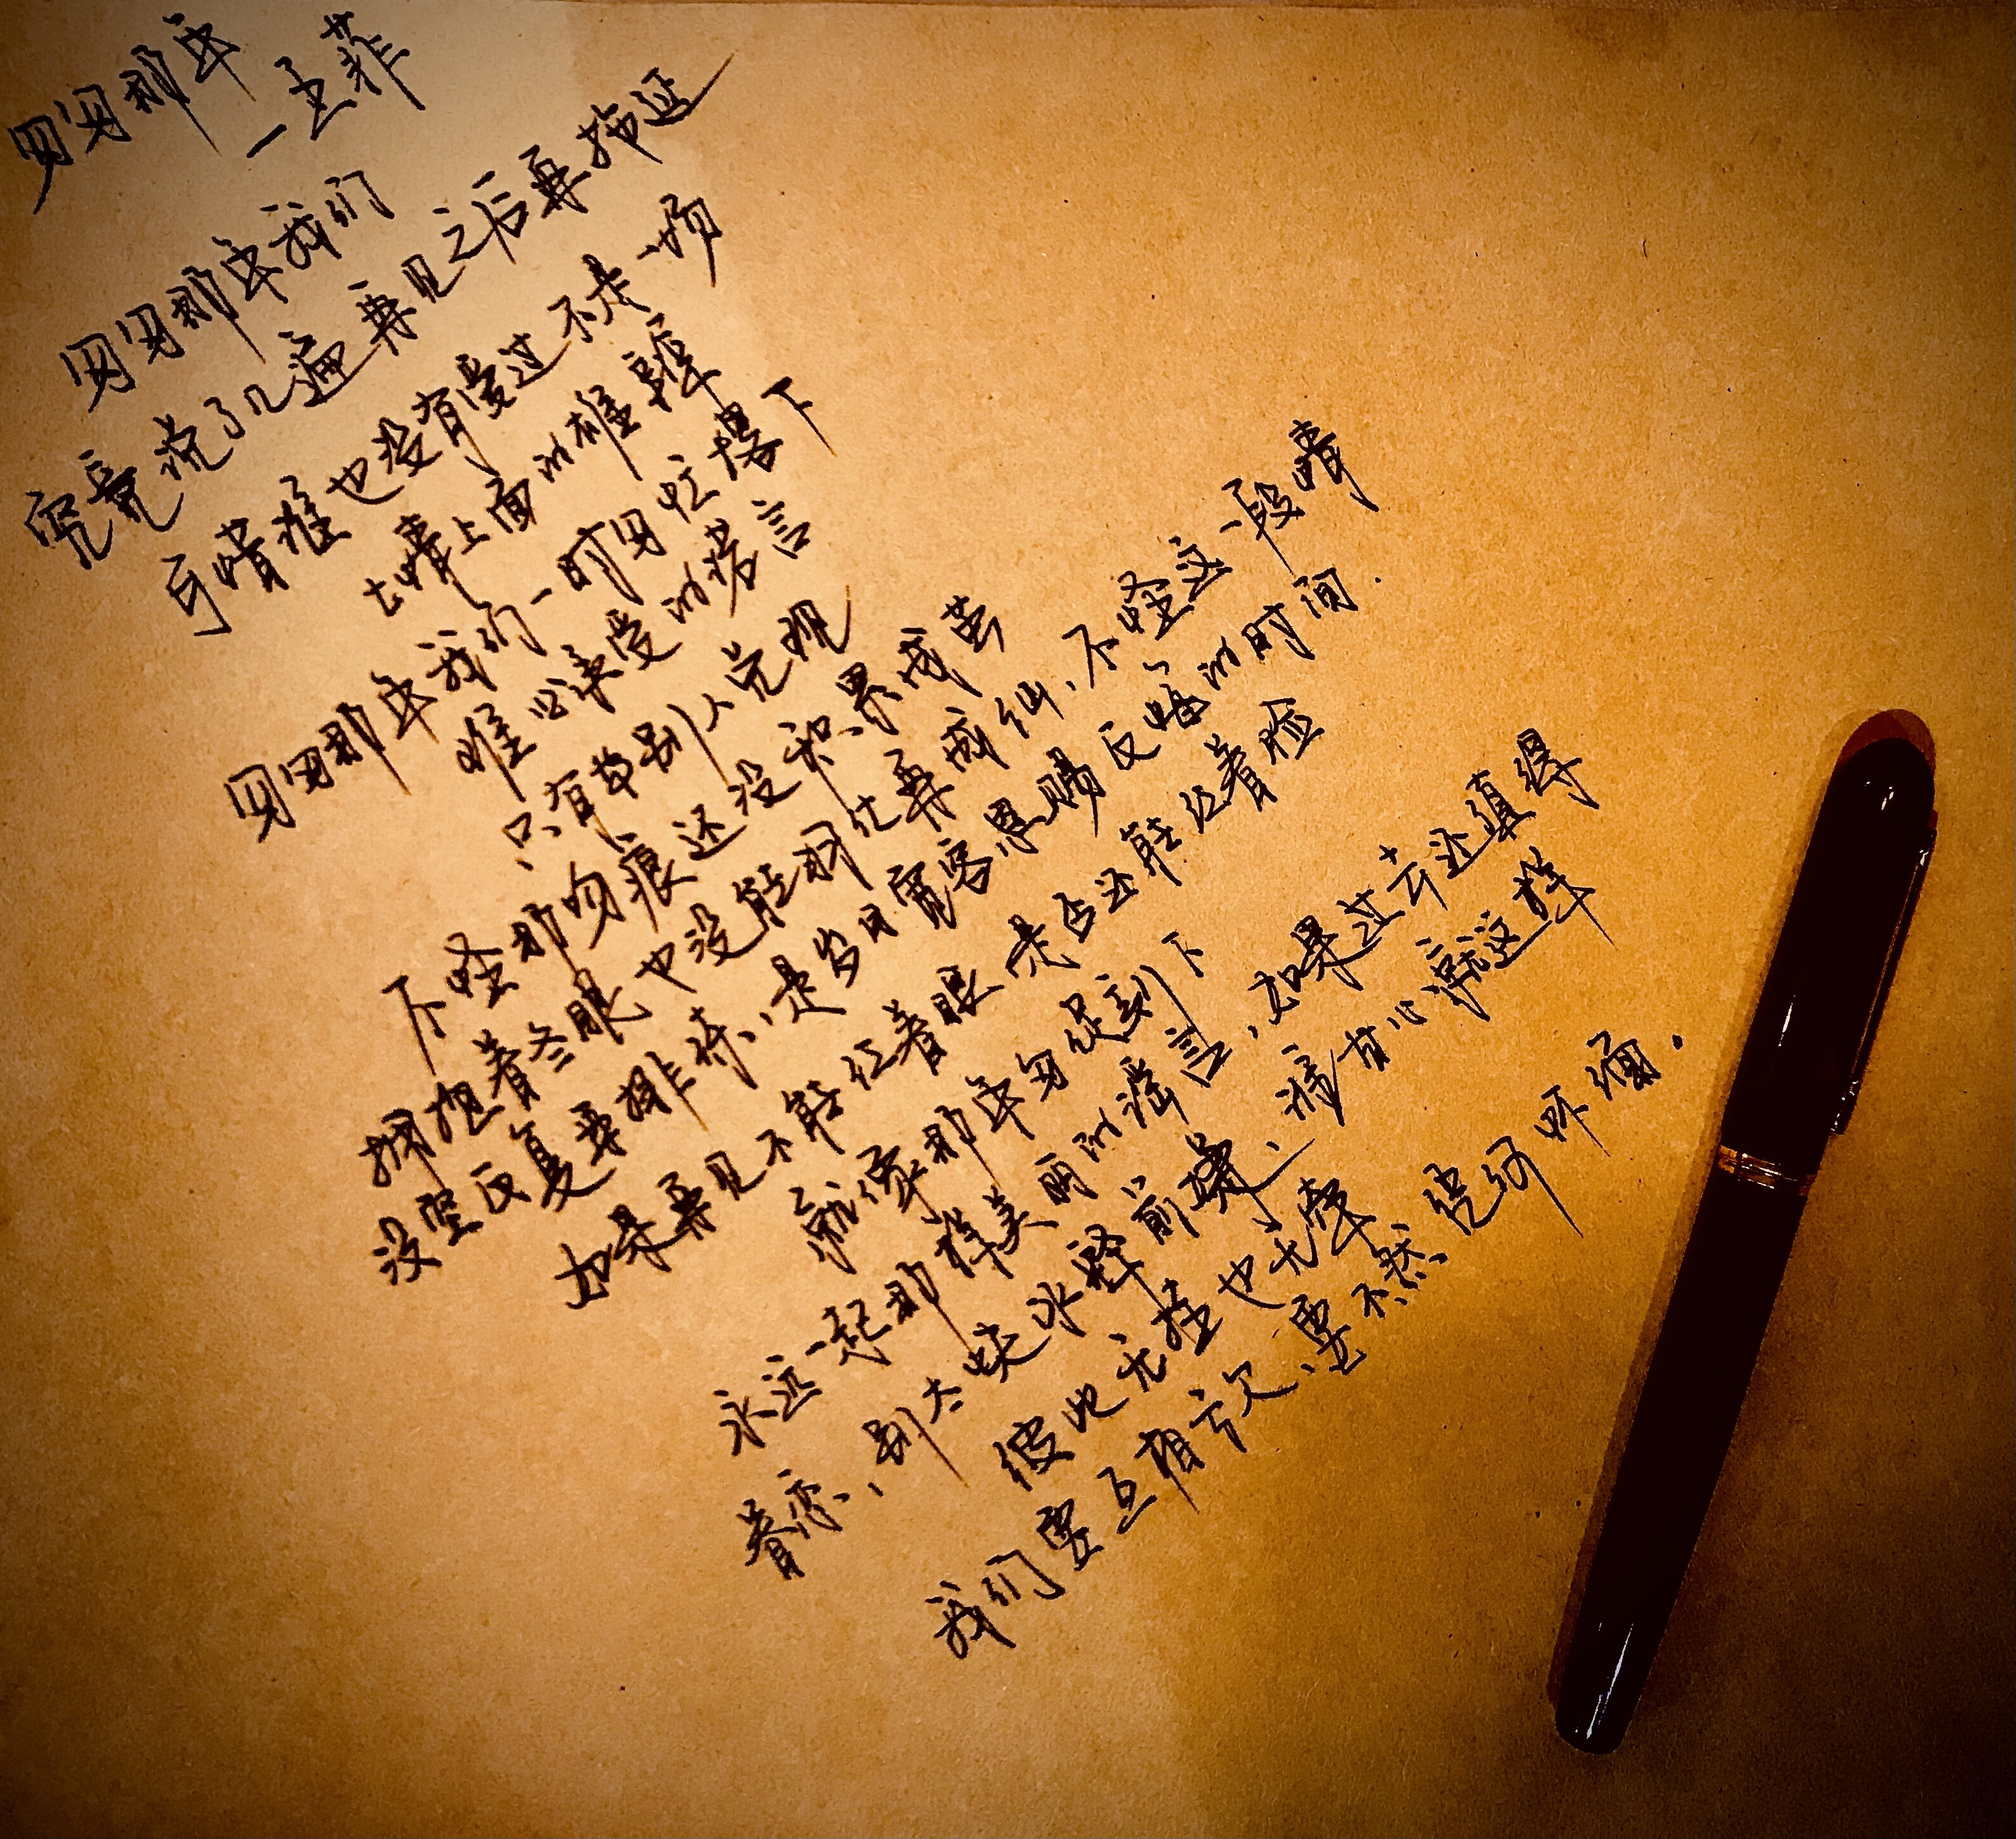 匆匆那年
—王菲
匆匆那年我们
究竟说了几遍再见之后再拖延
可惜谁也没有爱过不是一场
七情上面的雄辩
匆匆那年我们一时匆忙撂下
难以承受的诺言
只有等别人兑现
不怪那吻痕还没积累成茧
拥抱着冬眠也没能羽化再成仙、不怪这一段情
没空反复再排练、是岁月宽容恩赐反悔的时间.
如果再见不能红着眼是否还能红着脸
就像那年匆促刻下
永远一起那样美丽的谣言,如果过去还值得
眷恋,别太快冰释前嫌、谁甘心就这样
彼此无挂也无牵
我们要互相亏欠、要不然凭何怀缅.